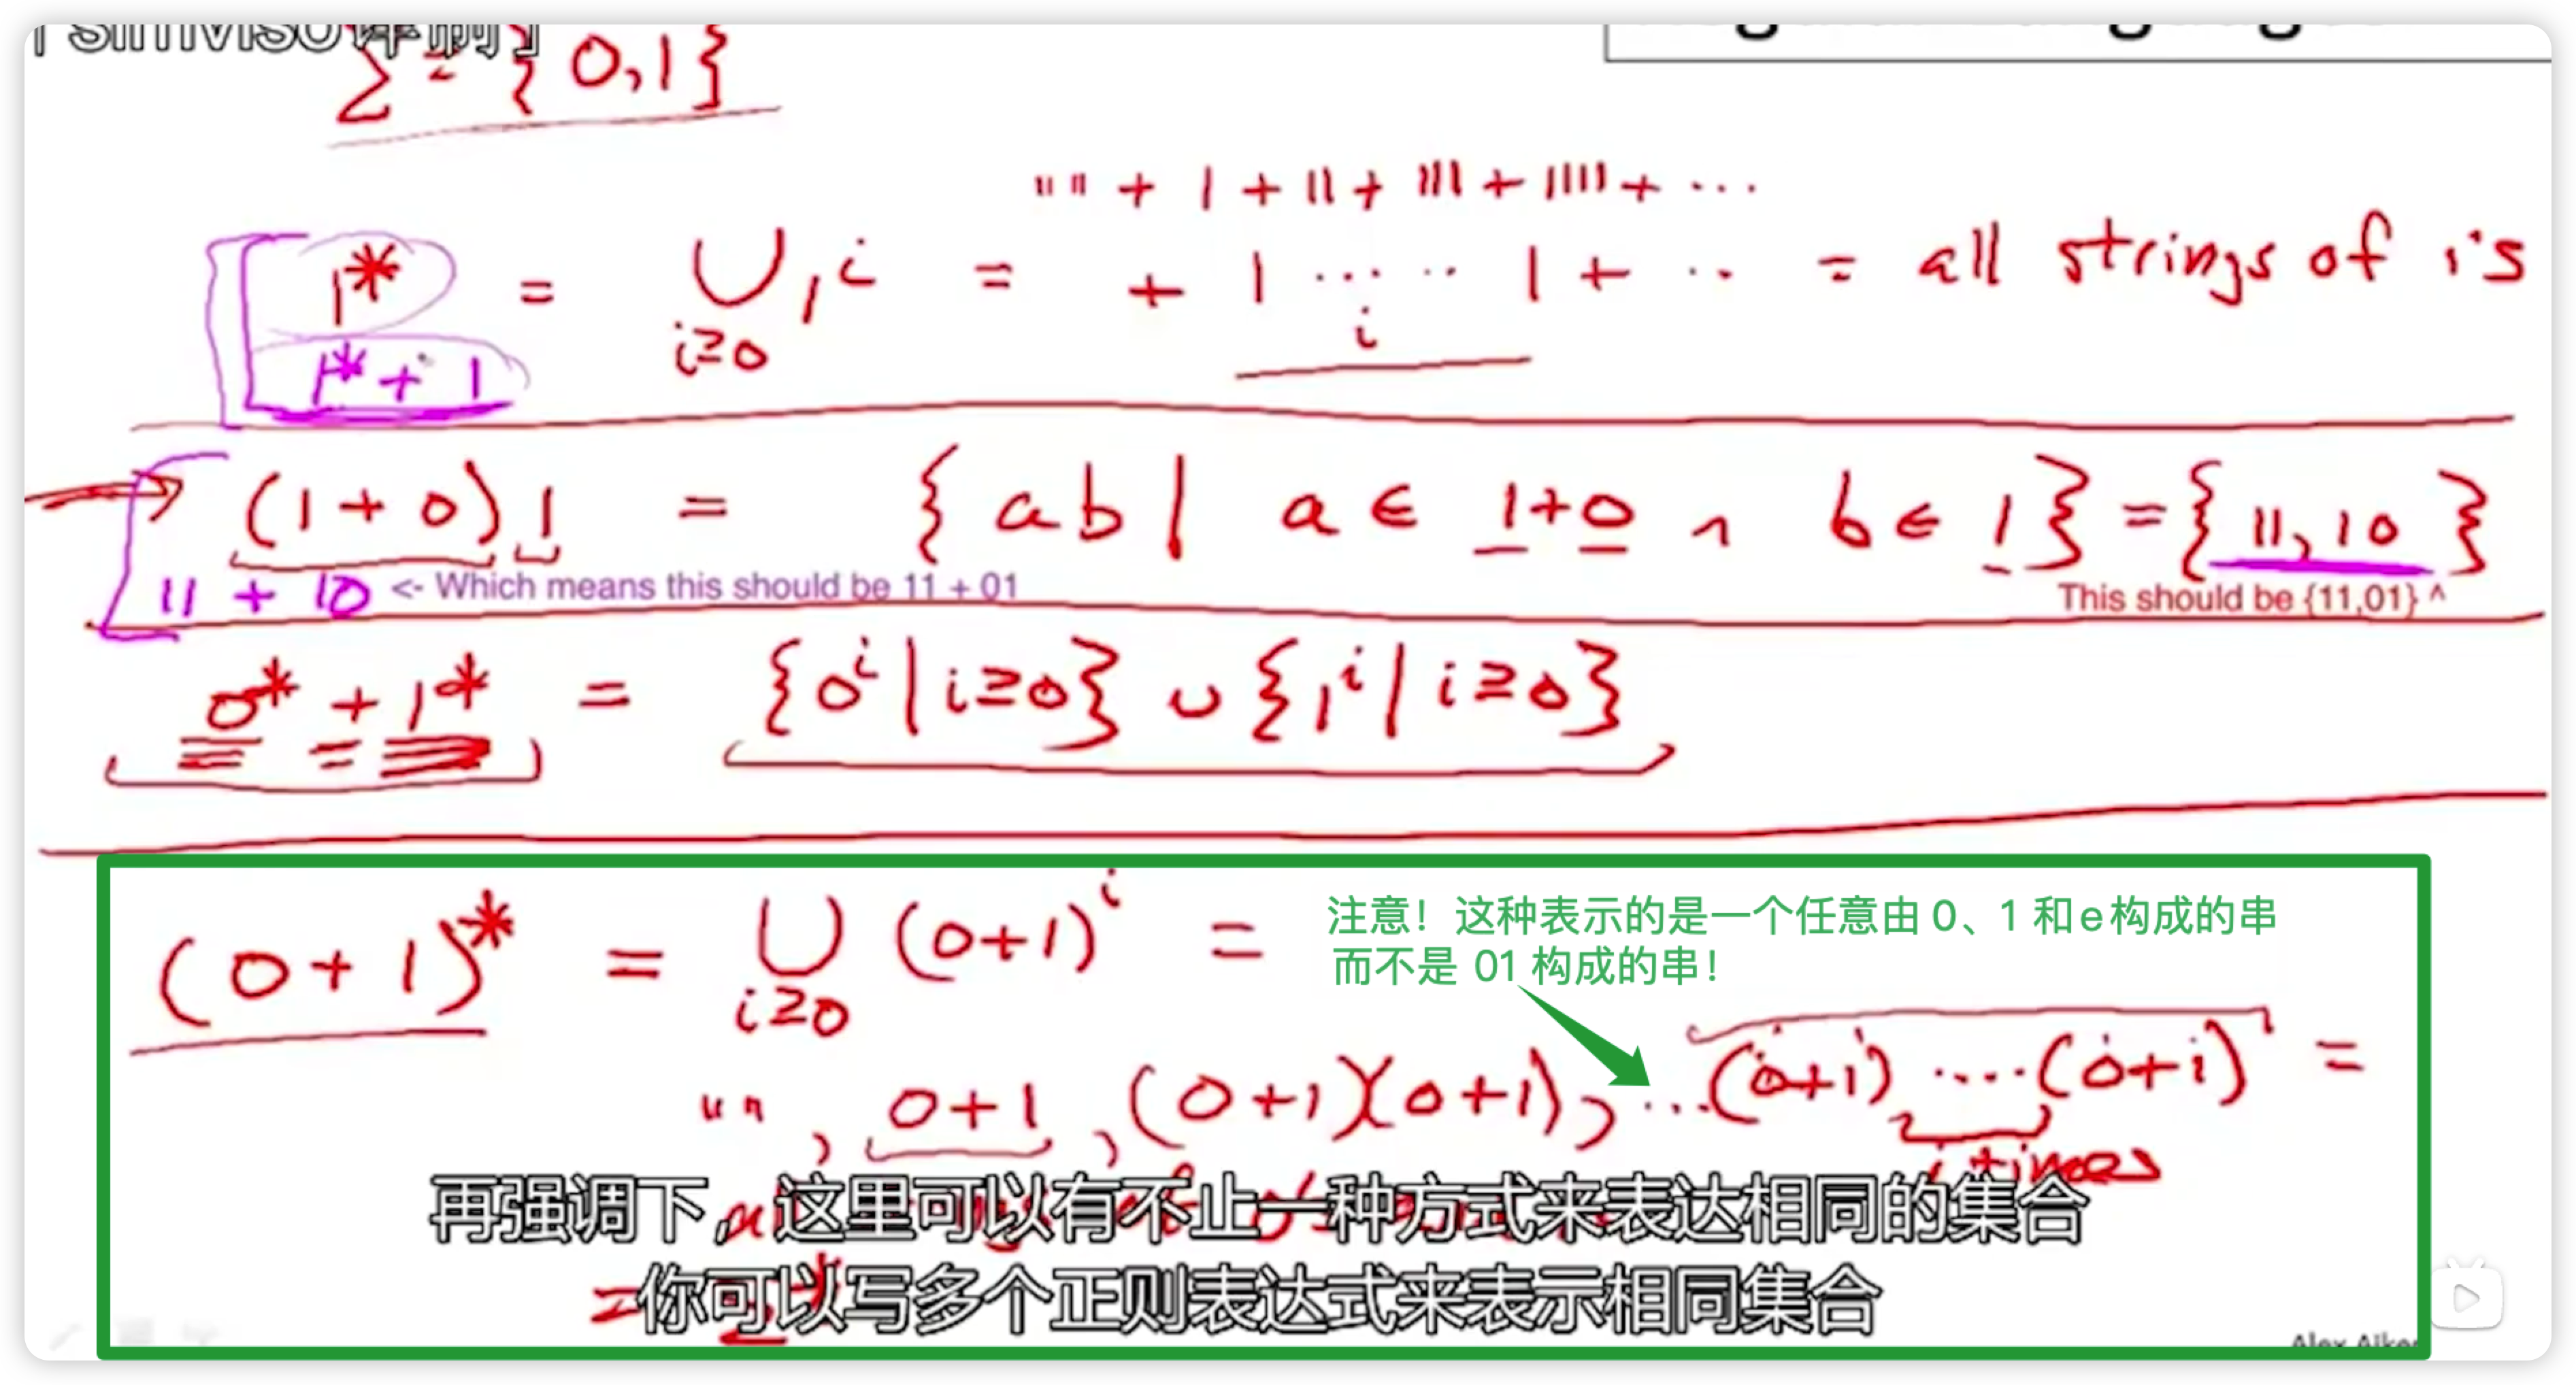 simviso译制]
Σ = {0,1}
"" + 1 + 11 + 111 + 1111 + ...
1* = ⋃ 1^i = + 1 ..... 1 + .. = all strings of 1's
i≥0
i
1* + 1
(1+0)1 = {ab | a ∈ 1+0 ∧ b ∈ 1} = {11,10}
11 + 10 <- Which means this should be 11 + 01
This should be {11,01} ^
0* + 1* = {0^i | i≥0} ∪ {1^i | i≥0}
注意！这种表示的是一个任意由 0、1 和e构成的串
而不是 01 构成的串！
(0+1)* = ⋃ (0+1)^i =
i≥0
"" , 0+1 , (0+1)(0+1), ...(0+1) ....(0+1) =
i times
再强调下，这里可以有不止一种方式来表达相同的集合
= Σ*
你可以写多个正则表达式来表示相同集合